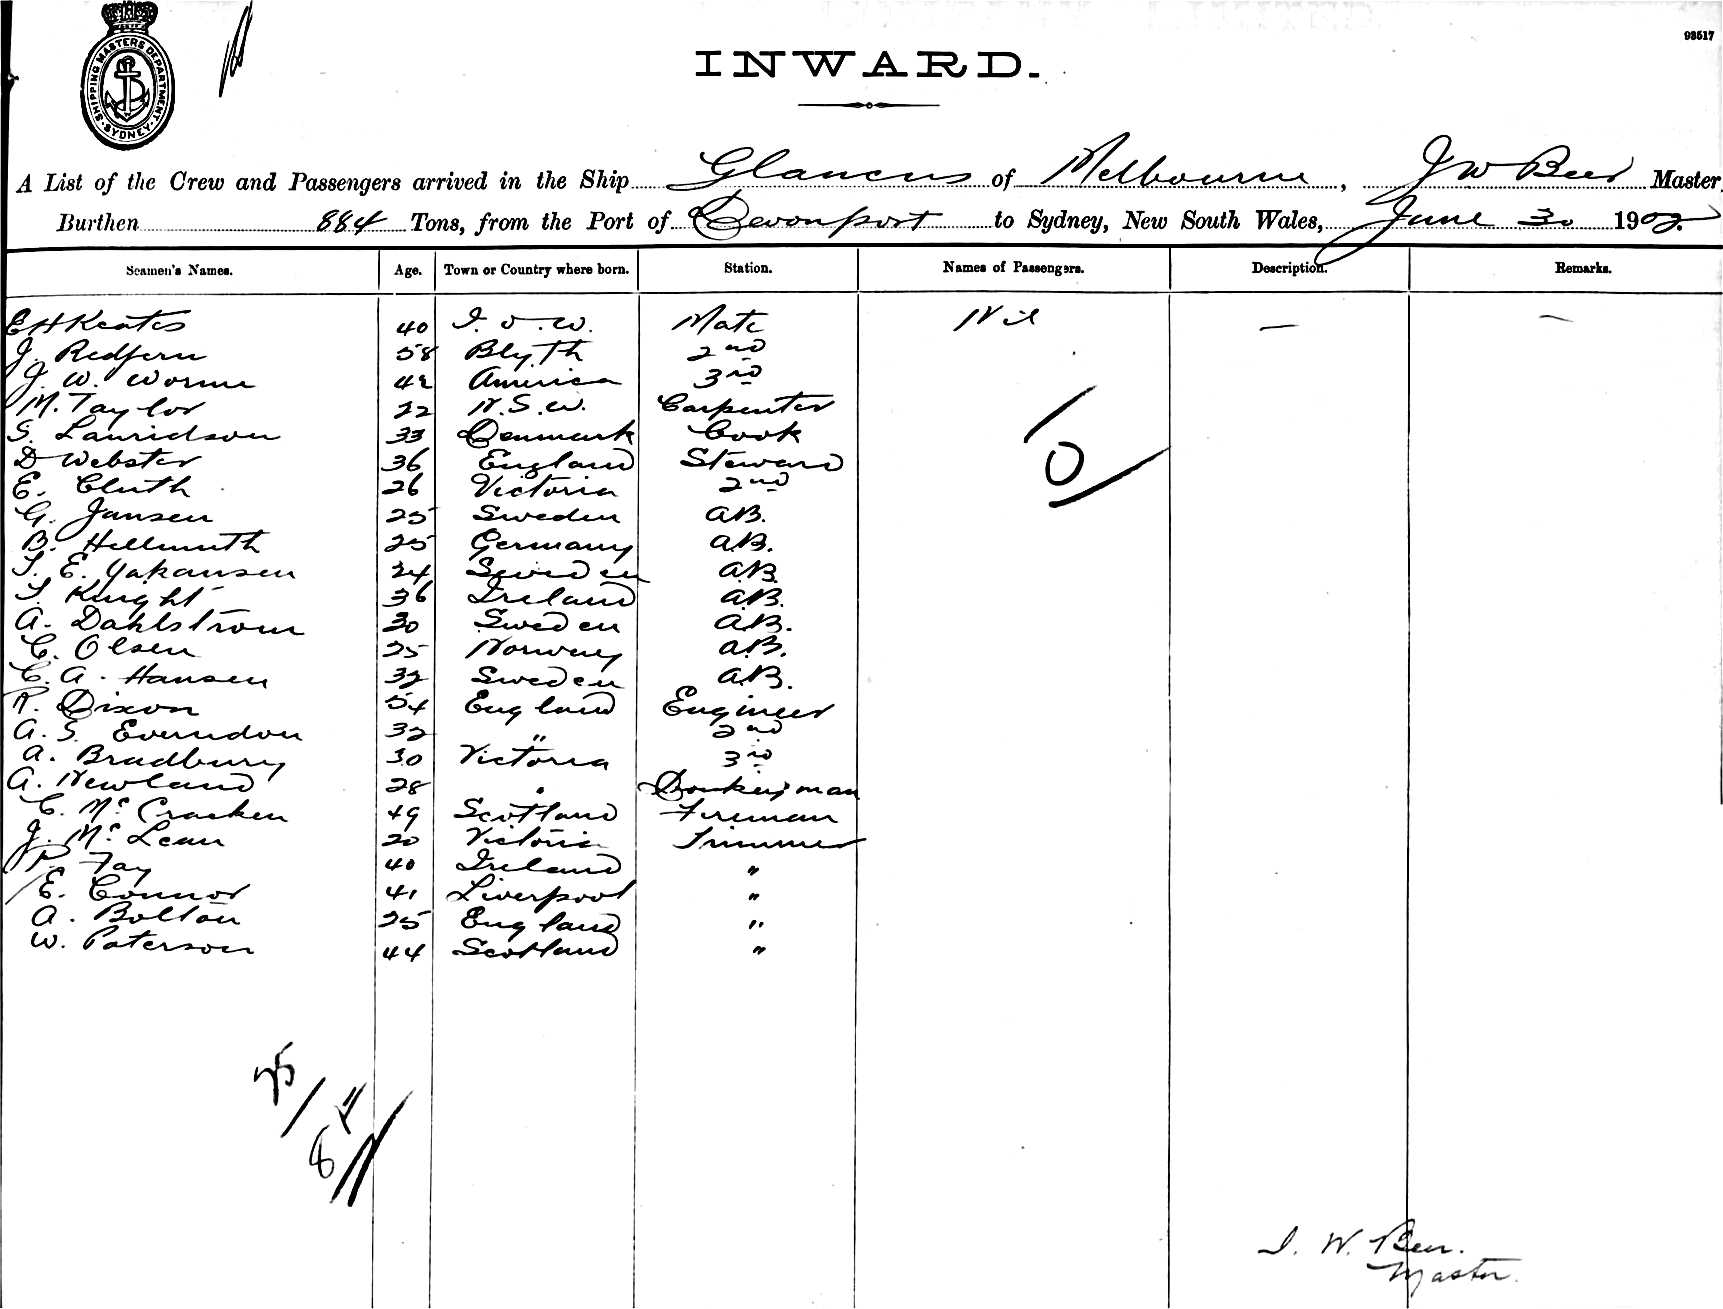 SHIPPING MASTERS DEPARTMENT SYDNEY
98517
INWARD.
A List of the Crew and Passengers arrived in the Ship Glaucus of Melbourne, J W Beer Master
Burthen 884 Tons, from the Port of Devonport to Sydney, New South Wales, June 30 1902
Seamen's Names. Age. Town or Country where born. Station. Names of Passengers. Description. Remarks.
E H Keates 40 I. O. W. Mate Nil — —
J. Redfern 58 Blyth 2nd
J. W. Worme 42 America 3rd
M. Taylor 22 N.S.W. Carpenter
S. Lauridson 33 Denmark Cook
D Webster 36 England Steward
E. Cluth 26 Victoria 2nd
G. Jansen 25 Sweden A.B.
B. Hellmuth 25 Germany A.B.
J. E. Yakansen 24 Sweden A.B.
T. Knight 36 Ireland A.B.
A. Dahlstrom 30 Sweden A.B.
C. Olsen 25 Norway A.B.
C. A. Hansen 32 Sweden A.B.
R. Dixon 54 England Engineer
A. S. Everndon 32 " 2nd
A. Bradbury 30 Victoria 3rd
A. Newland 28 " Donkeyman
C. McCracken 49 Scotland Fireman
J. McLean 20 Victoria Trimmer
P. Fay 40 Ireland "
E. Connor 41 Liverpool "
A. Bolton 25 England "
W. Paterson 44 Scotland "
0
25
J. W. Beer.
Master.